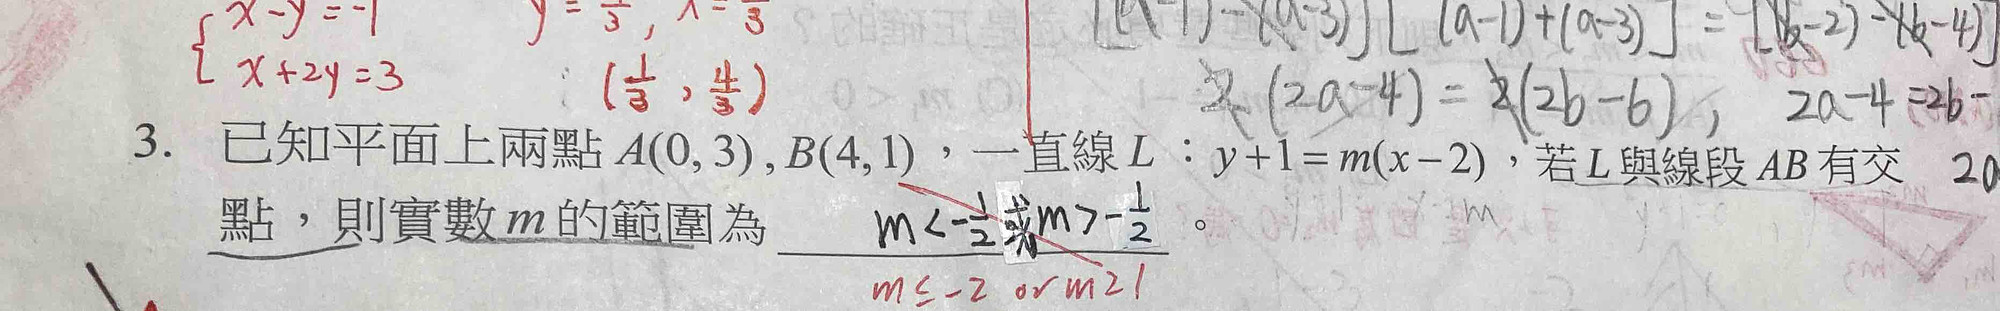 x-y=-1 y=1/3, x=1/3
[(a-1)-(a-3)][(a-1)+(a-3)]=[(b-2)-(b-4)]
{x+2y=3 (1/3, 4/3)
2(2a-4)=2(2b-6), 2a-4=2b-
3. 已知平面上兩點 A(0, 3), B(4, 1),一直線 L:y+1=m(x-2),若 L 與線段 AB 有交 20
點,則實數 m 的範圍為 m<-1/2 或 m>-1/2 。
m≤-2 or m≥1